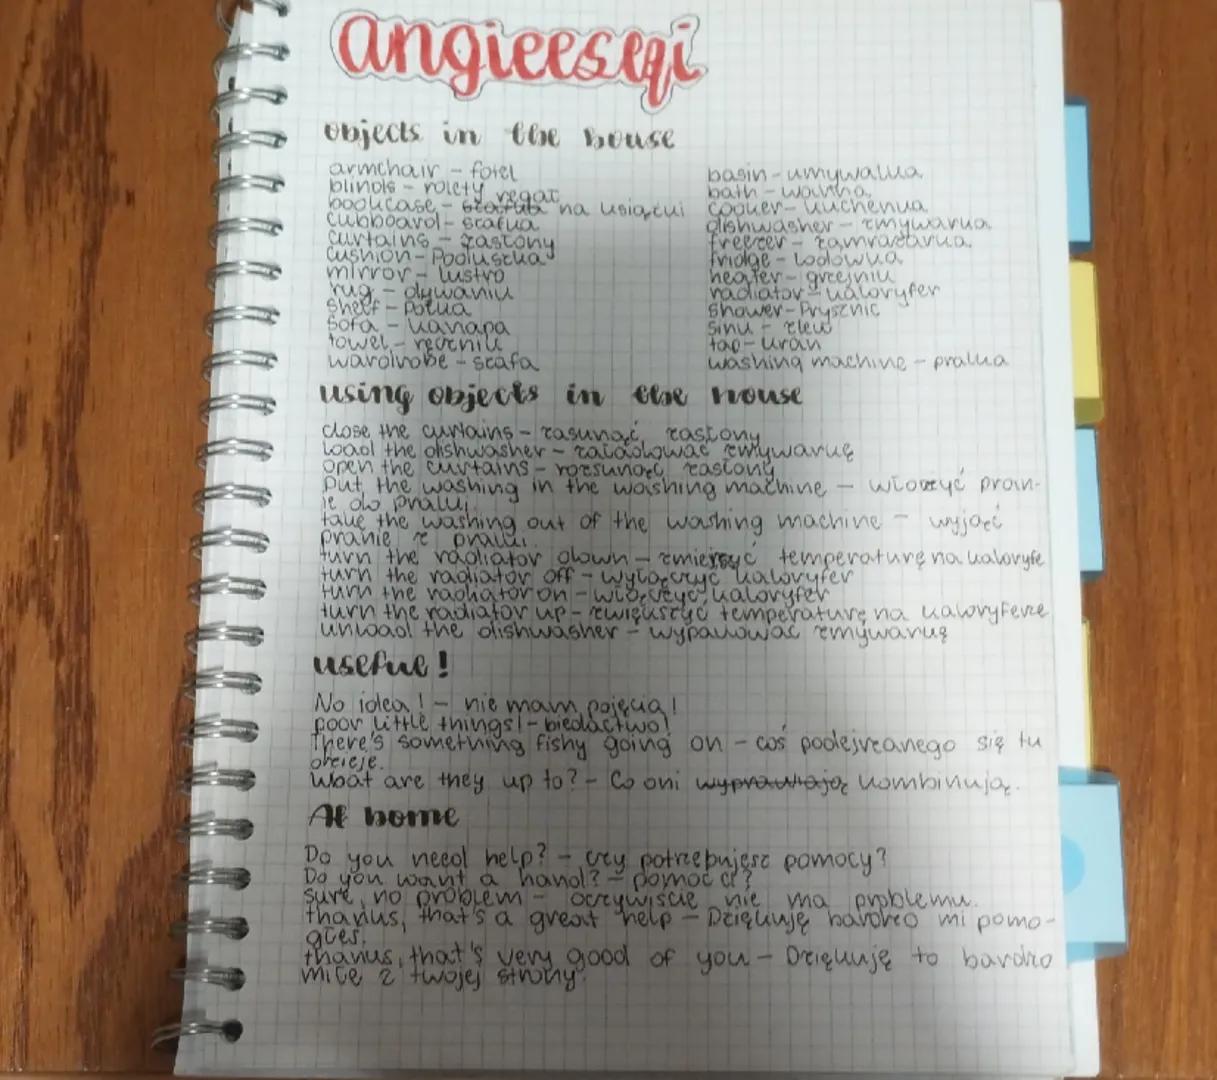 angieeseqi
objects in the house
armchair - fotel
blinds - rolety
bookcase - szafka regał na książki
cubboard - szafka
curtains - zasłony
cushion - Poduszka
mirror - lustro
rug - dywanik
shelf - Półka
sofa - kanapa
towel - ręcznik
wardrobe - szafa
basin - umywalka
bath - wanna
cooker - kuchenka
dishwasher - zmywarka
freezer - zamrażarka
fridge - lodówka
heater - grzejnik
radiator - kaloryfer
shower - Prysznic
sink - zlew
tap - kran
washing machine - pralka
using objects in the house
close the curtains - zasunąć zasłony
load the dishwasher - załadować zmywarkę
open the curtains - rozsunąć zasłony
put the washing in the washing machine - włożyć pran-
ie do pralki
take the washing out of the washing machine - wyjąć
pranie z pralki.
turn the radiator down - zmiejszyć temperaturę na kaloryfe
turn the radiator off - wyłączyć kaloryfer
turn the radiator on - włączyć kaloryfer
turn the radiator up - zwiększyć temperaturę na kaloryferze
unload the dishwasher - wypakować zmywarkę
useful!
No idea! - nie mam pojęcia!
poor little things! - biedactwo!
There's something fishy going on - coś podejrzanego się tu
dzieje.
What are they up to? - Co oni wyprawiają kombinują.
At home
Do you need help? - czy potrzebujesz pomocy?
Do you want a hand? - pomóc ci?
sure, no problem - oczywiście nie ma problemu.
thanks, that's a great help - Dziękuję bardzo mi pomo-
głeś.
thanks, that's very good of you - Dziękuję to bardzo
miłe z twojej strony.